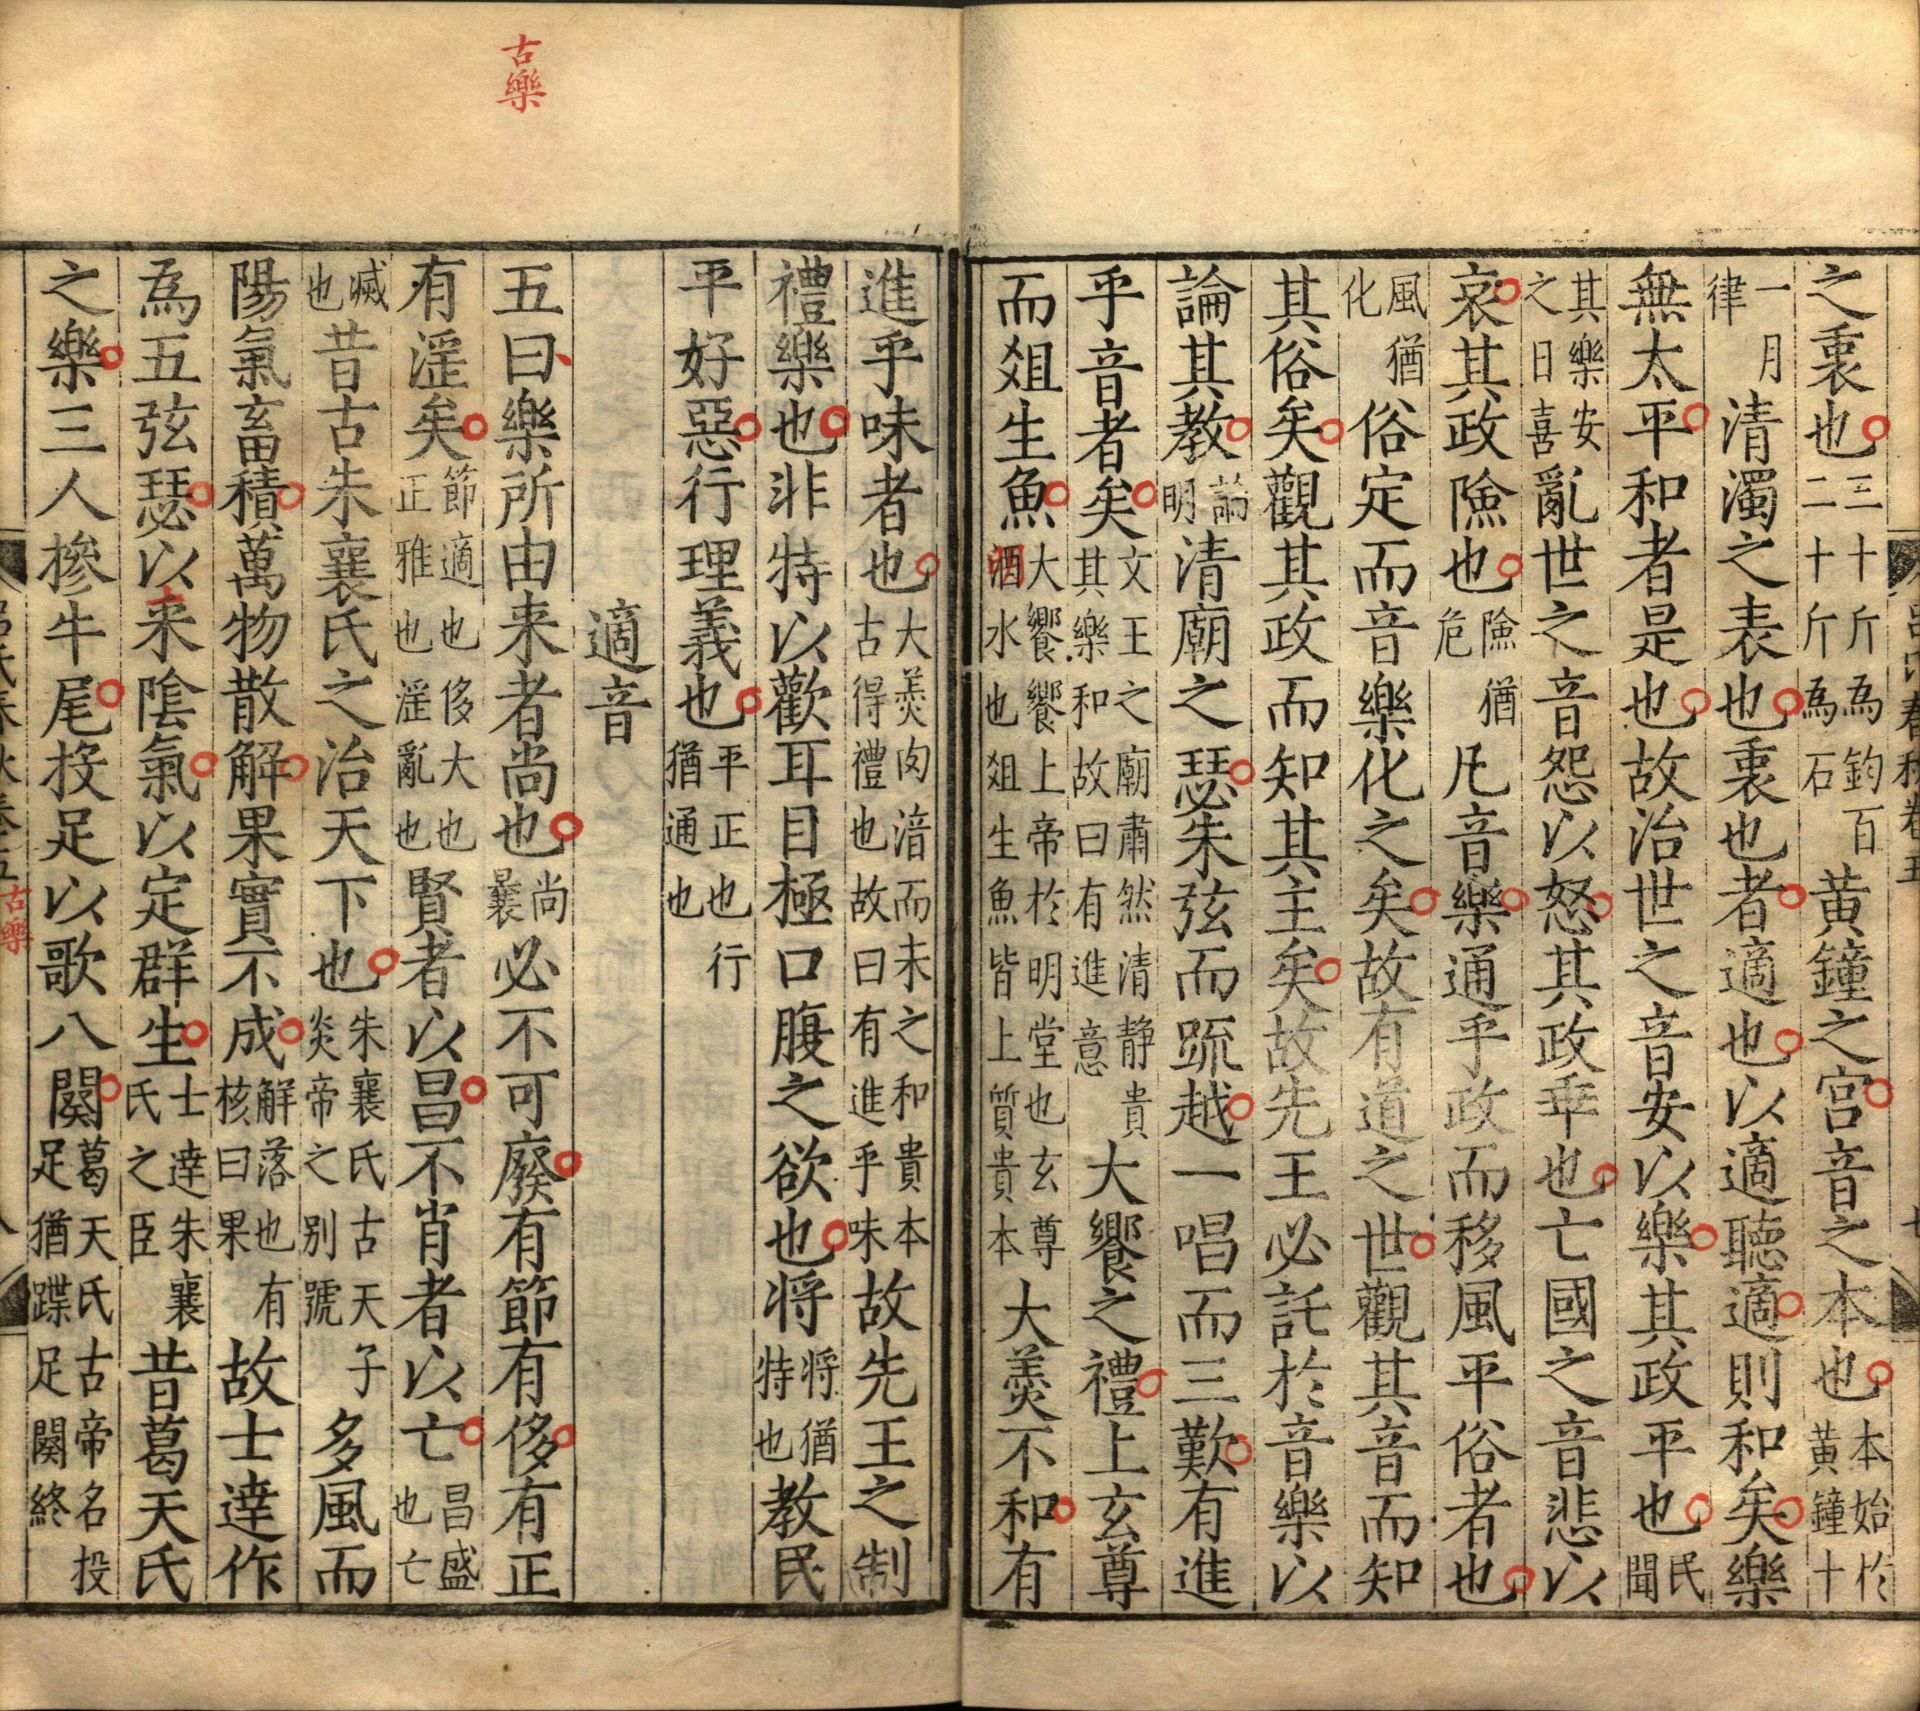 之衷也三十斤為鈞百二十斤為石黃鐘之宮音之本也本始於黃鐘十
一月律清濁之表也衷也者適也以適聽適則和矣樂
無太平和者是也故治世之音安以樂其政平也民聞
其樂安之日喜亂世之音怨以怒其政乖也亡國之音悲以
哀其政險也險猶危凡音樂通乎政而移風平俗者也
風猶化俗定而音樂化之矣故有道之世觀其音而知
其俗矣觀其政而知其主矣故先王必託於音樂以
論其教論明清廟之瑟朱弦而疏越一唱而三歎有進
乎音者矣文王之廟肅然清静貴其樂和故曰有進意大饗之禮上玄尊
而俎生魚大饗饗上帝於明堂也玄尊酒水也俎生魚皆上質貴本大羹不和有
進乎味者也大羮肉湆而未之和貴本古得禮也故曰有進乎味故先王之制
禮樂也非特以歡耳目極口腹之欲也将将猶特也教民
平好惡行理義也平正也行猶通也
適音
古樂
五曰樂所由来者尚也尚曩必不可廢有節有侈有正
有淫矣節適也侈大也正雅也淫亂也賢者以昌不肖者以亡昌盛也亡
滅也昔古朱襄氏之治天下也朱襄氏古天子炎帝之别號多風而
陽氣畜積萬物散解果實不成解落也有核曰果故士達作
為五弦瑟以来陰氣以定群生士達朱襄氏之臣昔葛天氏
之樂三人摻牛尾投足以歌八闋葛天氏古帝名投足猶蹀足闋終
古樂